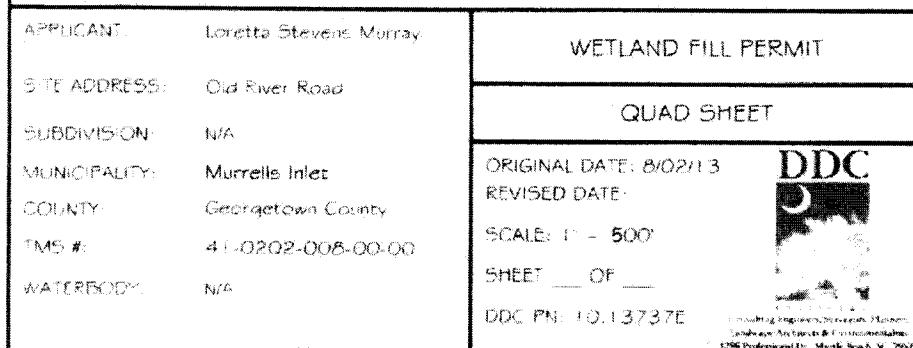 APPLICANT: Loretta Stevens Murray
SITE ADDRESS: Old River Road
SUBDIVISION: N/A
MUNICIPALITY: Murrells Inlet
COUNTY: Georgetown County
TMS #: 41-0202-008-00-00
WATERBODY: N/A
WETLAND FILL PERMIT
QUAD SHEET
ORIGINAL DATE: 8/02/13
REVISED DATE:
SCALE: 1" = 500'
SHEET ___ OF ___
DDC PN: 10.13737E
DDC
Consulting Engineers, Surveyors, Planners,
Landscape Architects & Environmentalists
1298 Professional Dr. Myrtle Beach, SC